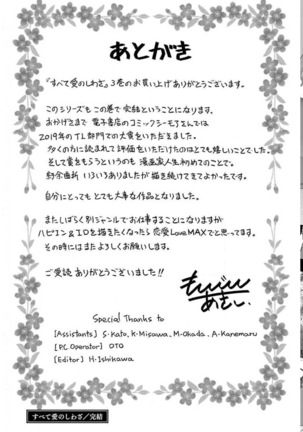 あとがき
『すべて愛のしわざ』3巻のお買い上げありがとうございます。
このシリーズもこの巻で完結ということになります。
おかげさまで 電子書店のコミックシーモアさんでは
2019年のTL部門での大賞をいただきました。
多くの方に読まれて評価をいただけたのはとても嬉しいことでした。
そして賞をもらうというのも 漫画家人生初めてのことで。
紆余曲折 いろいろありましたが 描き続けてきてよかったです。
自分にとっても とても大事な作品となりました。
またしばらく別ジャンルでお仕事することになりますが
ハピエン&エロを描きたくなったら恋愛LoveMAXでと思ってます。
その時にはまたよろしくお願いします。
ご愛読 ありがとうございました!!
Special Thanks to
[Assistants] S.Kato, K.Misawa, M.Okada, A.Kanemaru
[PC Operator] OTO
[Editor] H.Ishikawa
すべて愛のしわざ/完結